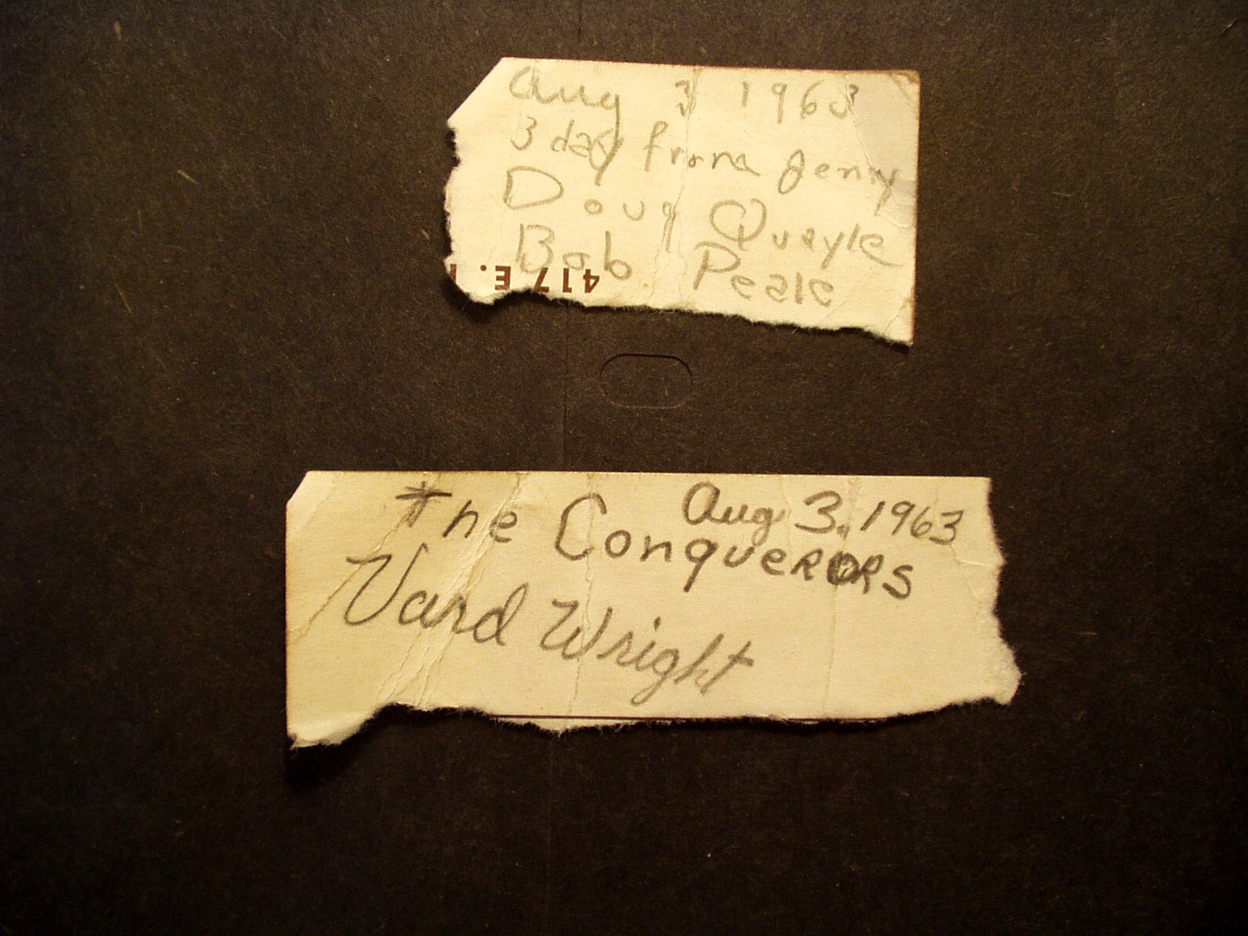 Aug 3 1963
3 day from Jenny
Doug Quayle
Bob Peale
417 E.
Aug 3, 1963
The Conquerors
Vard Wright